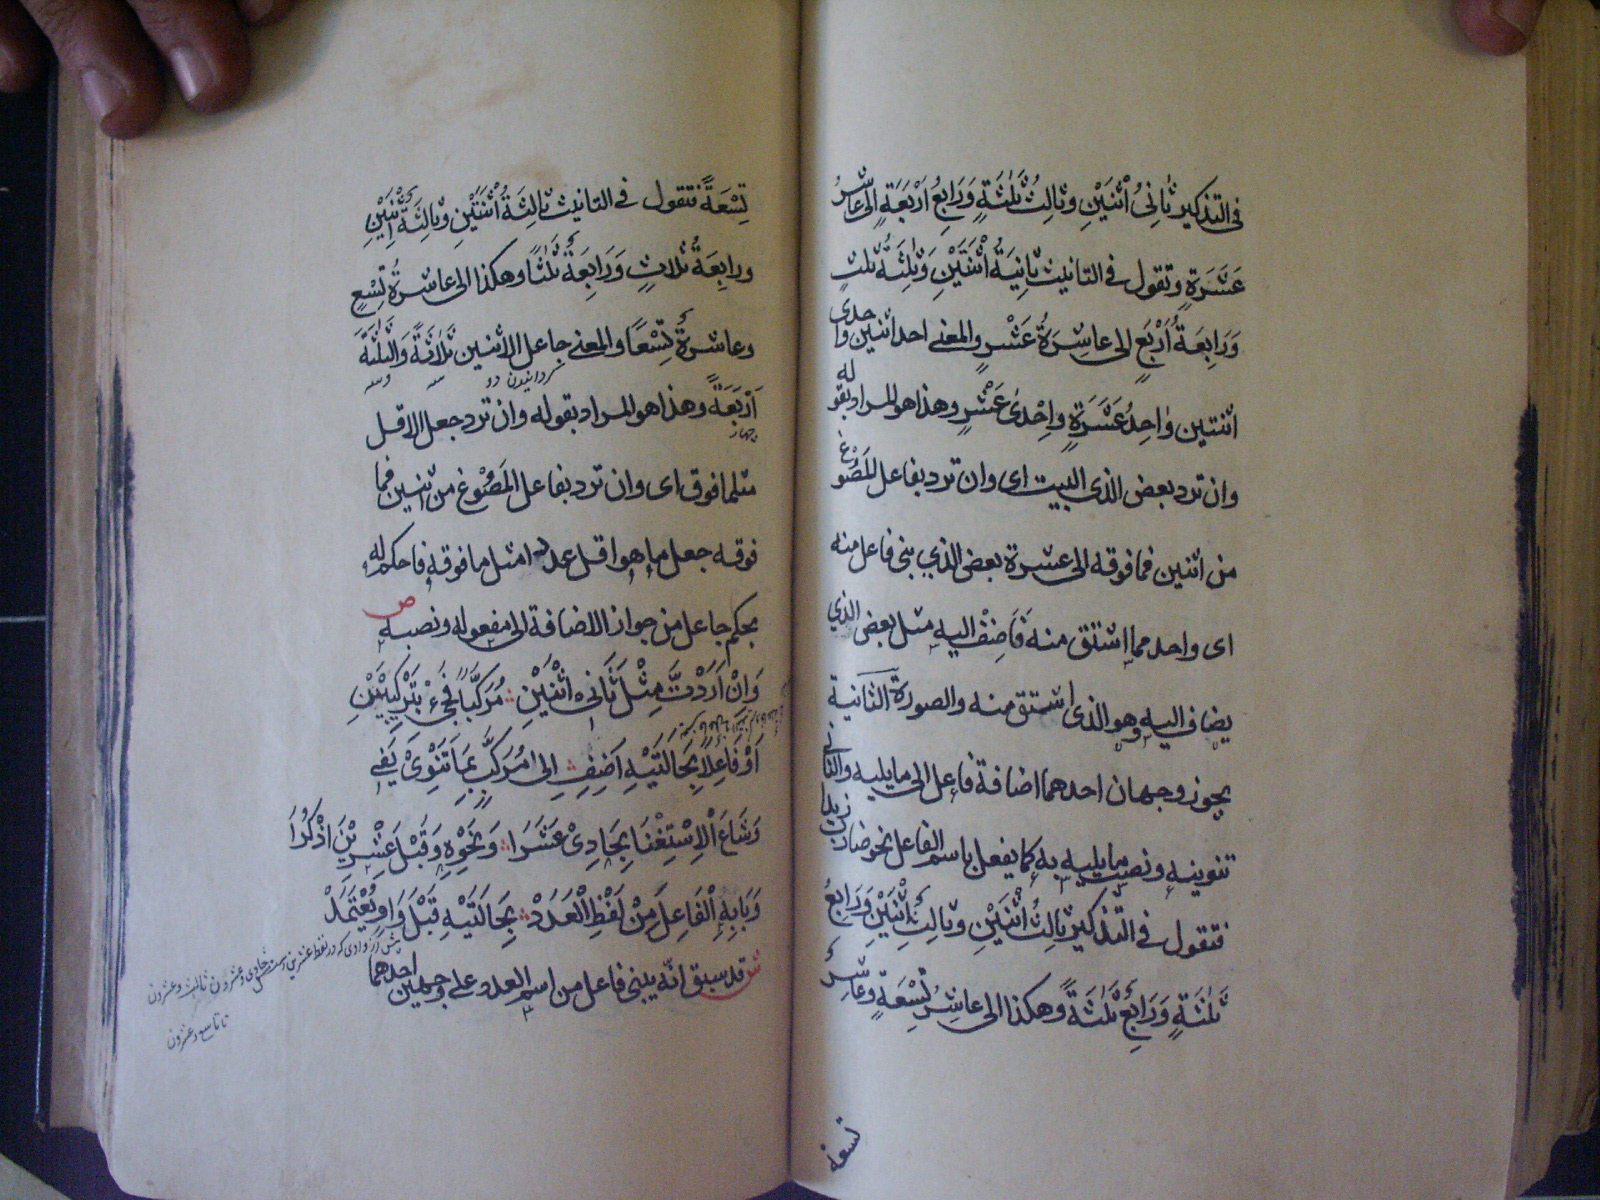 فى التذكير ثَانِىُ اثْنَيْنِ وثَالِثُ ثَلثَةٍ وَرَابِعُ اَرْبَعَةٍ الى عَاشِرُ
عَشَرَةٍ وتقول فى التانيث ثانِيَةُ اثْنَتَيْنِ وَثَالِثَةُ ثلثٍ
وَرَابِعَةُ اَرْبَعٍ الى عاشِرَةُ عَشْرٍ والمعنى احد اثنين واحدى
اثنتين وَاحِدُ عَشَرَةٍ وَاِحْدىٰ عَشْرٍ وهذا هو المراد بقوله
وان ترد بعض الذى البيت اى وان ترد بفاعل المَصُوْغ
من اثنين فما فوقه الى عشرة بعض الذي بنى فاعل منه
اى واحد مما اشتق منه فَاَضِفْ اليه مثل بعض الذي
يضاف اليه وهو الذى اشتق منه والصورة الثانية
يجوز وجهان احدهما اضافة فاعل الى مايليه والثانى
تنوينه ونصب مايليه به كما يفعل باسم الفاعل نحو ضارب زيدا
فتقول فى التذكير ثالِثُ اثْنَيْنِ وثالِثٌ اِثْنَيْنِ وَرَابِعُ
ثَلٰثَةٍ وَرَابِعٌ ثَلٰثَةً وهكذا الى عاشِرُ تِسْعَةٍ وعَاشِرٌ
تسعة
تِسْعَةً فتقول فى التانيث ثالِثَةُ اثْنَتَيْنِ وثَالِثَةٌ اثْنَتَيْنِ
ورابِعَةُ ثلاثٍ وَرَابِعَةٌ ثَلٰثًا وهكذا الى عاشرةُ تِسْعٍ
وعاشرةٌ تِسْعًا والمعنى جاعل الاثنين ثَلاثَةً والثَّلٰثَةَ
كردانيدن دو سه وسه
اَرْبَعَةً وهذا هو المراد بقوله وان ترد جعل الاقل
چهار
مثل ما فوق اى وان ترد بفاعل المَصُوْغ من اثنين فما
فوقه جعل ما هو اقل عددا مثل ما فوقه فاحكم له
بحكم جاعل من جواز الاضافة الى مفعوله ونصبه
ص
وَاِنْ اَرَدْتَّ مِثْلَ ثَانِىْ اثْنَيْنِ مُرَكَّبًا فَجِىْءْ بِتَرْكِيْبَيْنِ
اَوْ فَاعِلًا بِحَالَتَيْهِ اَضِفِ الى مُرَكَّبٍ بِمَا تَنْوِىْ يَفِى
وَشَاعَ اْلاِسْتِغْنَا بِحَادِىْ عَشَرَا وَنَحْوِهِ وَقَبْلَ عِشْرِيْنَ اذْكُرَا
وَبَابِهِ الْفَاعِلَ مِنْ لَفْظِ الْعَدَدْ بِحَالَتَيْهِ قَبْلَ وَاوٍ يُعْتَمَدْ
ش قد سبق انّه يبنى فاعل من اسم العدد على وجهين احدهما
پيش از واوى كه در لفظ عشرين است مثل حادى وعشرون ثالث وعشرون
تا تاسع وعشرون